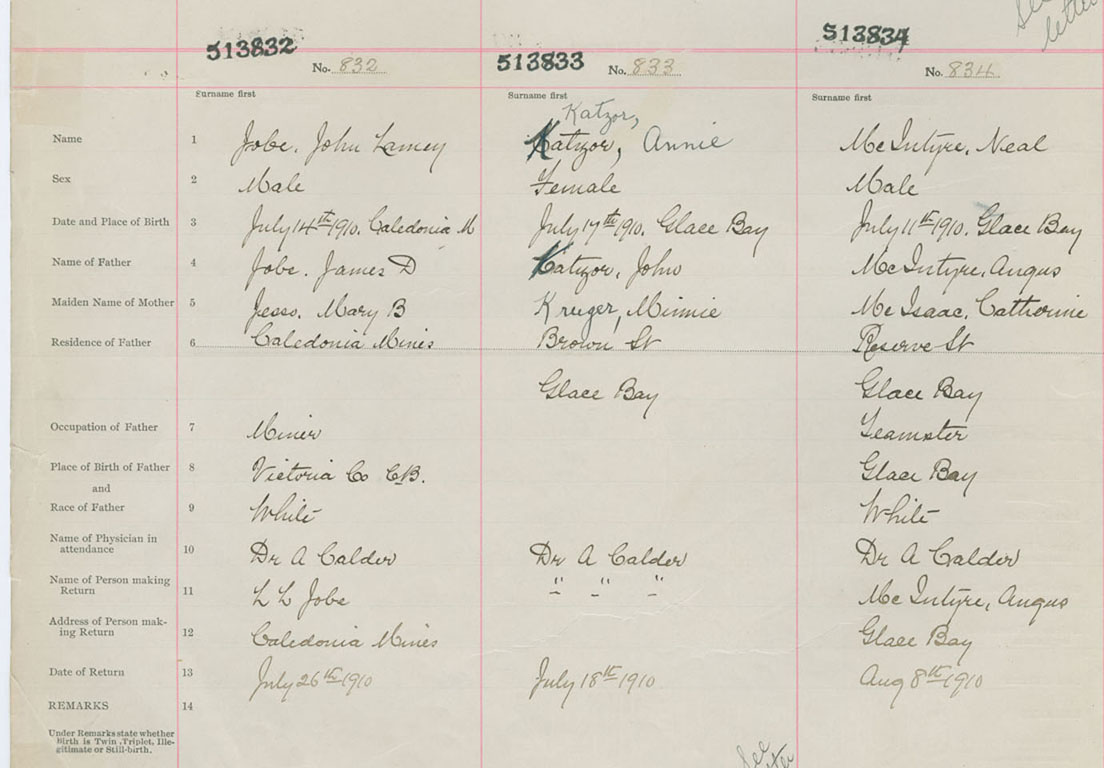 See
letter
513832 513833 513834
No. 832 No. 833 No. 834
Surname first Surname first Surname first
Katzor,
Name 1 Jobe. John Lamey Katizor, Annie McIntyre, Neal
Sex 2 Male Female Male
Date and Place of Birth 3 July 14th 1910. Caledonia M July 17th 1910. Glace Bay July 11th 1910. Glace Bay
Name of Father 4 Jobe. James D Katizor, John McIntyre, Angus
Maiden Name of Mother 5 Jesso. Mary B Kruger, Minnie McIsaac, Catherine
Residence of Father 6 Caledonia Mines Brown St Reserve St
Glace Bay Glace Bay
Occupation of Father 7 Miner Teamster
Place of Birth of Father 8 Victoria Co C.B. Glace Bay
and
Race of Father 9 White White
Name of Physician in
attendance 10 Dr A Calder Dr A Calder Dr A Calder
Name of Person making
Return 11 L L Jobe " " " McIntyre, Angus
Address of Person mak-
ing Return 12 Caledonia Mines Glace Bay
Date of Return 13 July 26th 1910 July 18th 1910 Aug 8th 1910
REMARKS 14
Under Remarks state whether
Birth is Twin, Triplet, Ille-
gitimate or Still-birth.
See